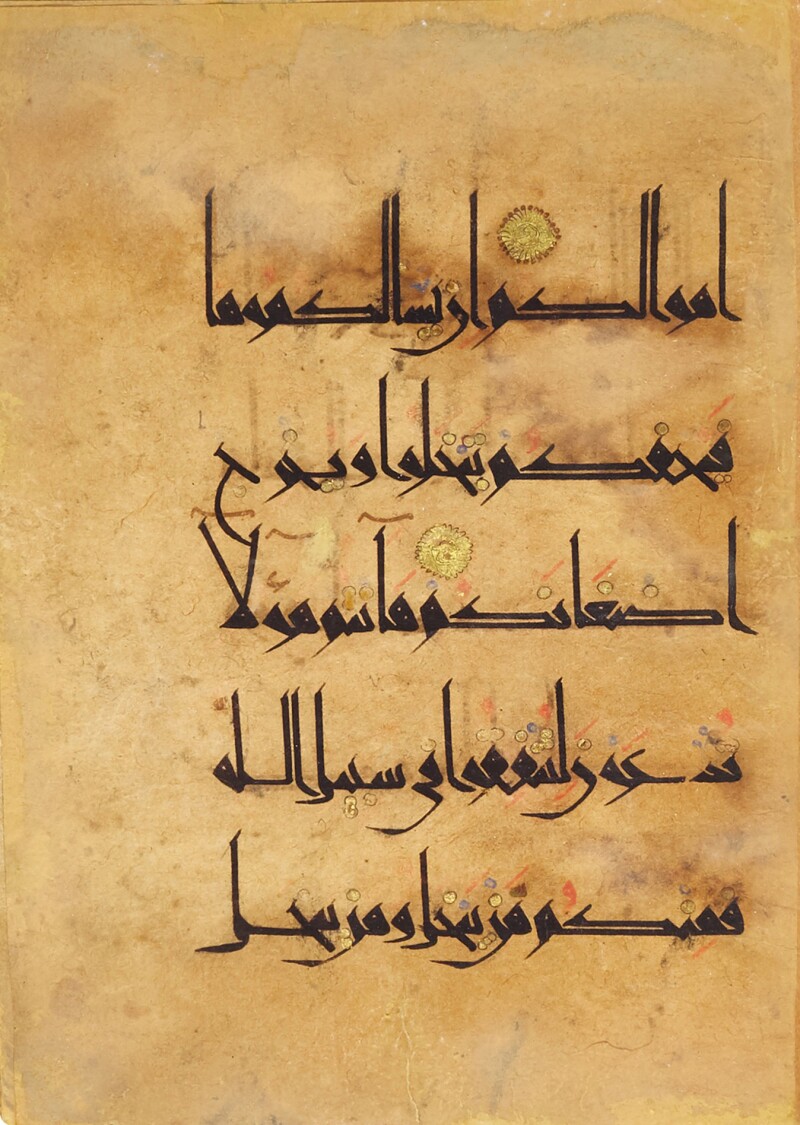 اموالكم ان يسالكموها
فيحفكم تبخلوا ويخرج
اضغانكم ها انتم هؤلآ
تدعون لتنفقوا في سبيل الله
فمنكم من يبخل ومن يبخل